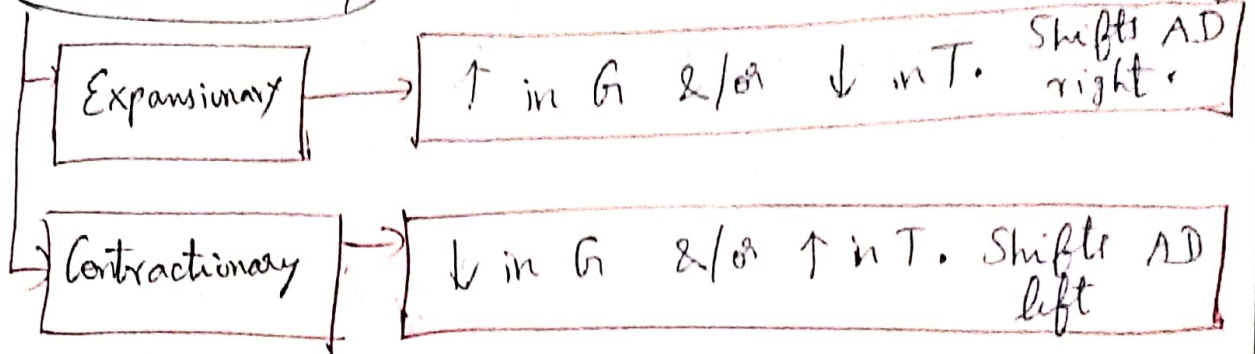 Expansionary
↑ in G &/or ↓ in T. Shifts AD
right.
Contractionary
↓ in G &/or ↑ in T. Shifts AD
left